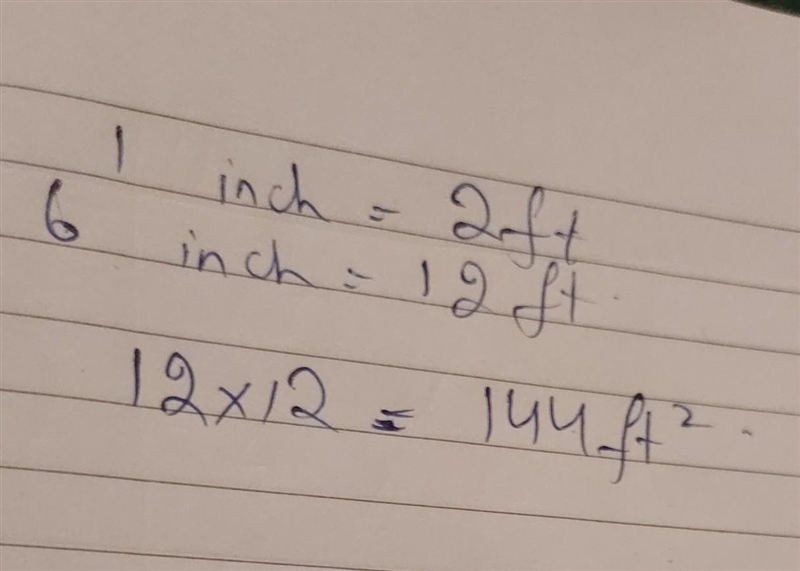 1 inch = 2ft
6 inch = 12 ft.
12 x 12 = 144 ft².